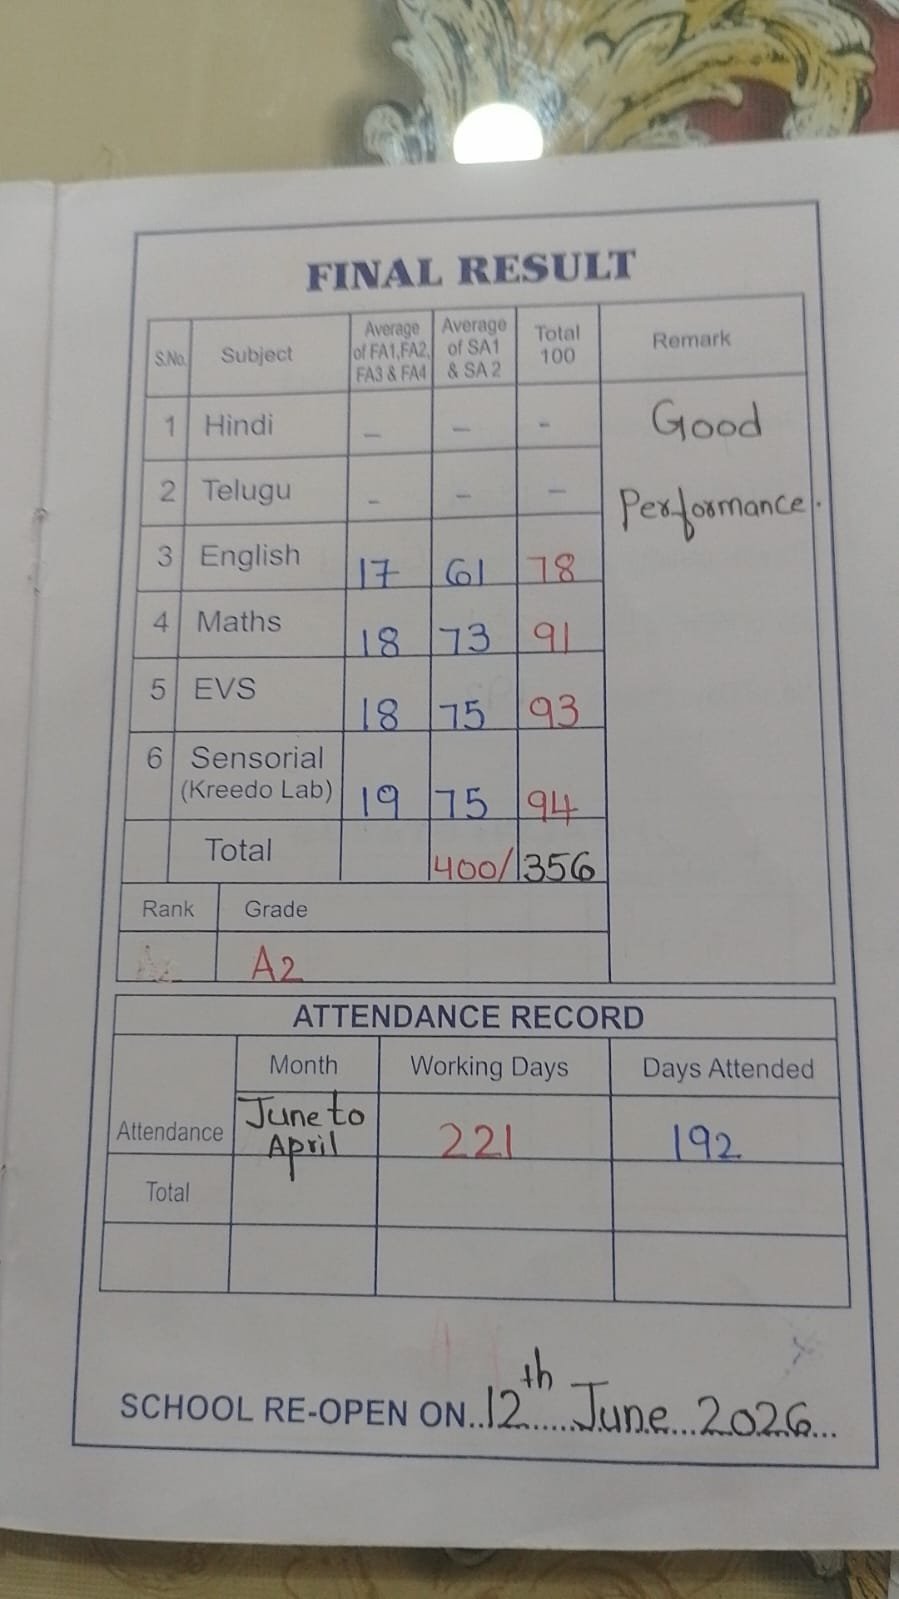 FINAL RESULT
S.No. Subject Average of FA1,FA2, FA3 & FA4 Average of SA1 & SA 2 Total 100 Remark
1 Hindi – – - Good
2 Telugu – – – Performance.
3 English 17 61 78
4 Maths 18 73 91
5 EVS 18 75 93
6 Sensorial
(Kreedo Lab) 19 75 94
Total 400/356
Rank Grade
A2
ATTENDANCE RECORD
Month Working Days Days Attended
Attendance June to April 221 192
Total
SCHOOL RE-OPEN ON..12th.....June...2026...